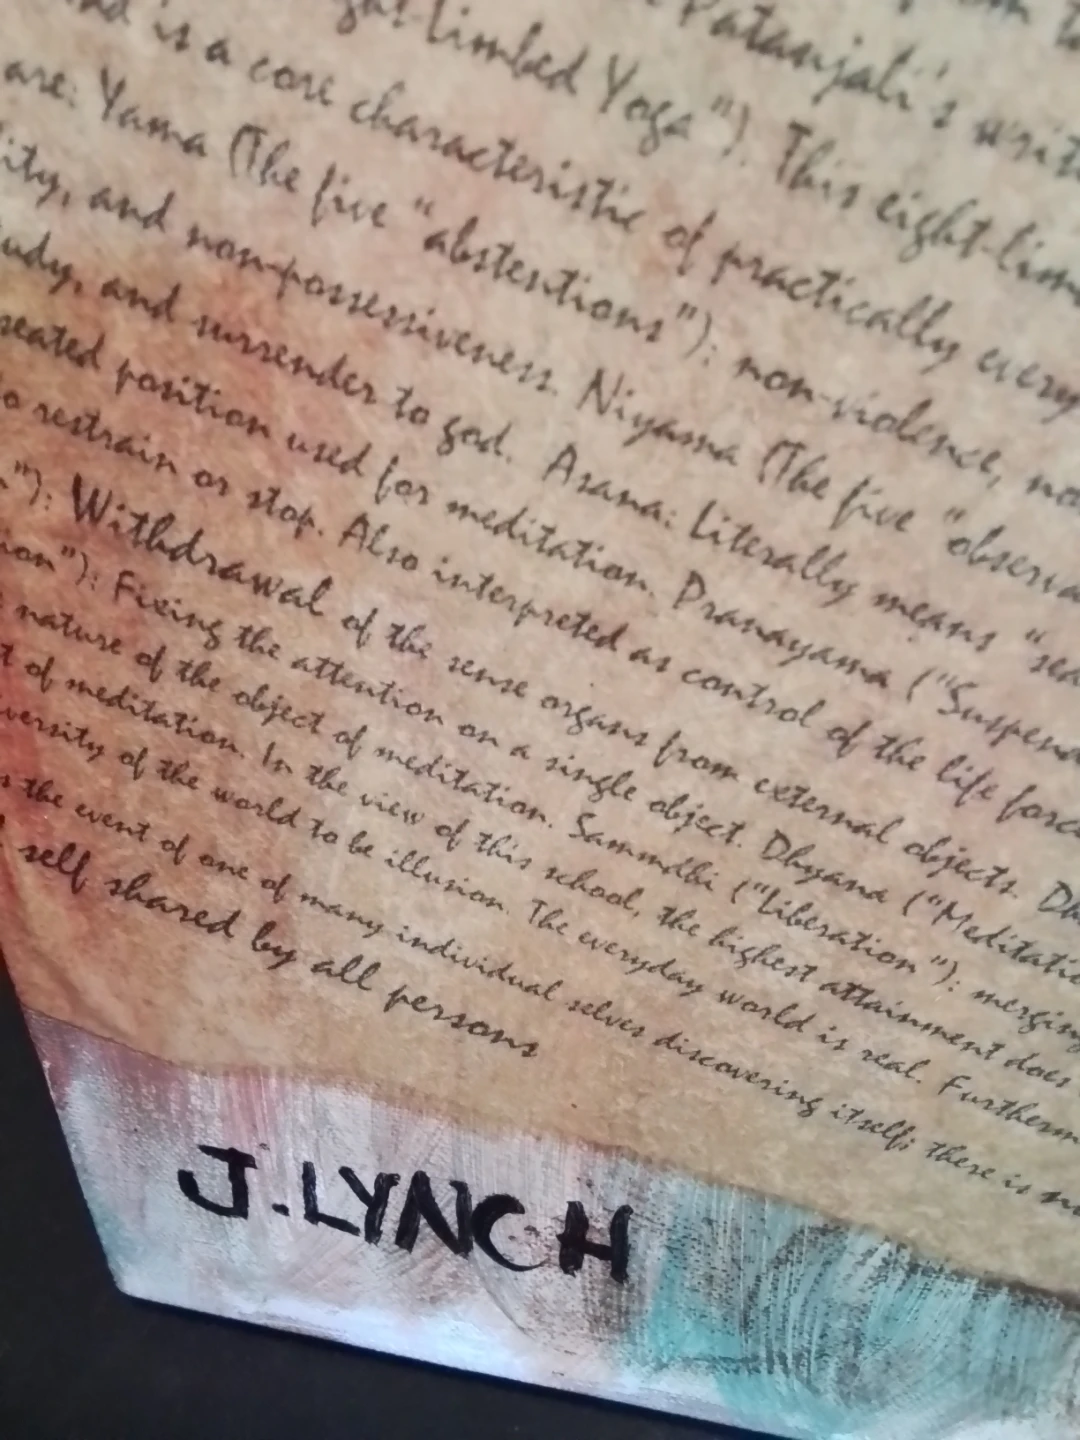 Patanjali's writ
ght-limbed Yoga"). This eight-lim
is a core characteristic of practically every
are: Yama (The five "abstentions"): non-violence, no
ity, and non-possessiveness. Niyama (The five "observa
udy, and surrender to god. Asana: Literally means "sea
seated position used for meditation. Pranayama ("Suspen
o restrain or stop. Also interpreted as control of the life force
"): Withdrawal of the sense organs from external objects. Dh
ion"): Fixing the attention on a single object. Dhyana ("Meditatio
nature of the object of meditation. Sammdhi ("Liberation"): merging
t of meditation. In the view of this school, the highest attainment does
versity of the world to be illusion. The everyday world is real. Furtherm
s the event of one of many individual selves discovering itself; there is n
self shared by all persons
J. LYNCH